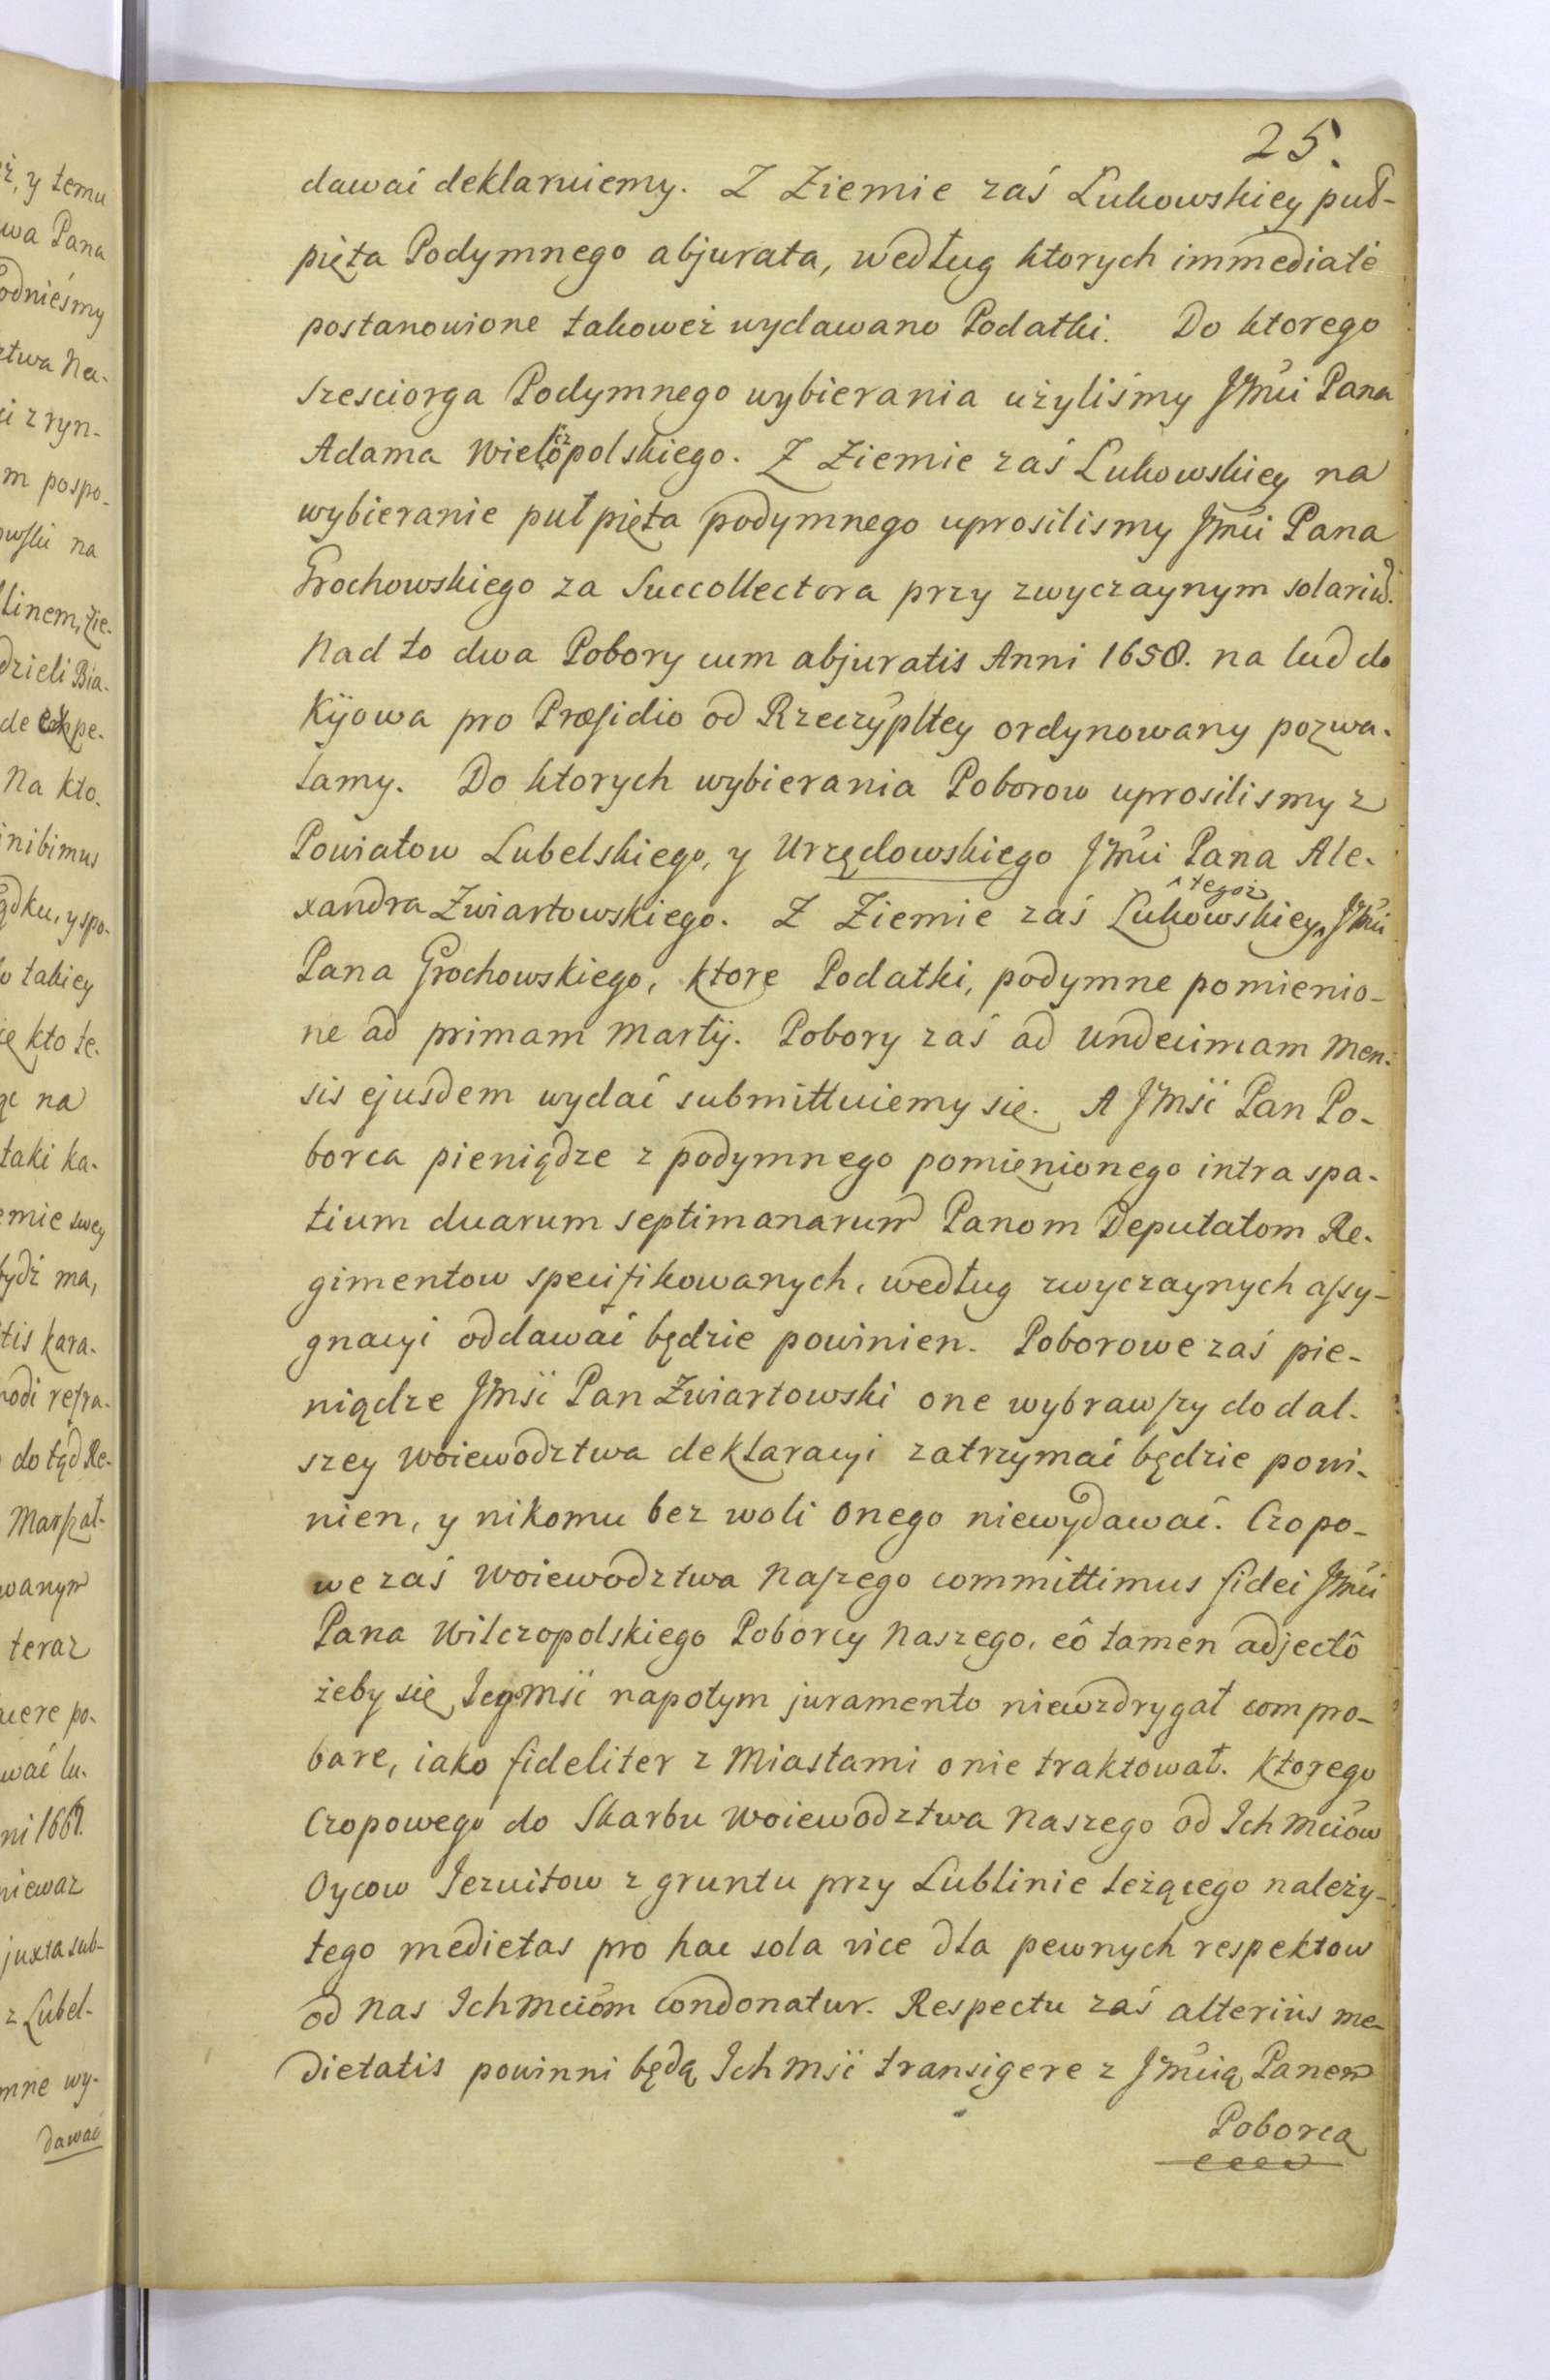 25.
dawać deklaruiemy. Z Ziemie zaś Lukowskiey puł-
pięta Podymnego abjurata, według ktorych immediatè
postanowione takoweż wydawano Podatki. Do ktorego
sześciorga Podymnego wybierania użyliśmy Jmći Pana
Adama Wielopolskiego. Z Ziemie zaś Lukowskiey na
wybieranie puł pięta podymnego uprosilismy Jmći Pana
Grochowskiego za Succollectora przy zwyczaynym solariū.
Nad to dwa Pobory cum abjuratis Anni 1658. na lud do
Kijowa pro Præsidio od Rzeczypltey ordynowany pozwa-
lamy. Do ktorych wybierania Poborow uprosilismy z
Powiatow Lubelskiego, y Urzędowskiego Jmći Pana Ale-
xandra Zwiartowskiego. Z Ziemie zaś Lukowskiey ^tegoż Jmći
Pana Grochowskiego, ktore Podatki, podymne pomienio-
ne ad primam Martij. Pobory zaś ad undecimam Men-
sis ejusdem wydać submittuiemy się. A Jmść Pan Po-
borca pieniądze z podymnego pomienionego intra spa-
tium duarum septimanarum Panom Deputatom Re-
gimentow specifikowanych, według zwyczaynych assy-
gnacyi oddawać będzie powinien. Poborowe zaś pie-
niądze Jmść Pan Zwiartowski one wybrawszy do dal-
szey Woiewodztwa deklaracyi zatrzymać będzie powi-
nien, y nikomu bez woli onego niewydawać. Czopo-
we zaś Woiewodztwa Naszego committimus fidei Jmći
Pana Wilczopolskiego Poborcy Naszego, eô tamen adjectô
żeby się Jegomść napotym juramento niewzdrygał compro-
bare, iako fideliter z Miastami o nie traktował. Ktorego
Czopowego do Skarbu Woiewodztwa Naszego od Ich Mciow
Oycow Jezuitow z gruntu przy Lublinie leżącego należy-
tego medietas pro hac sola vice dla pewnych respektow
od Nas Ich Mciom condonatur. Respectu zaś alterius me-
dietatis powinni będą Ich Mść transigere z Jmcią Panem
Poborcą